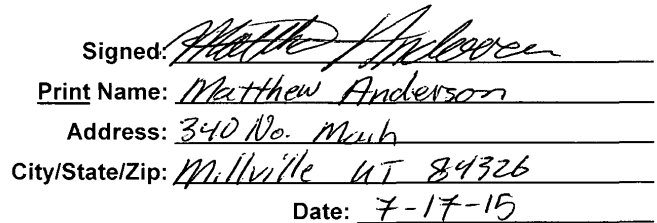 Signed: Matthew Anderson
Print Name: Matthew Anderson
Address: 340 No. Main
City/State/Zip: Millville UT 84326
Date: 7-17-15